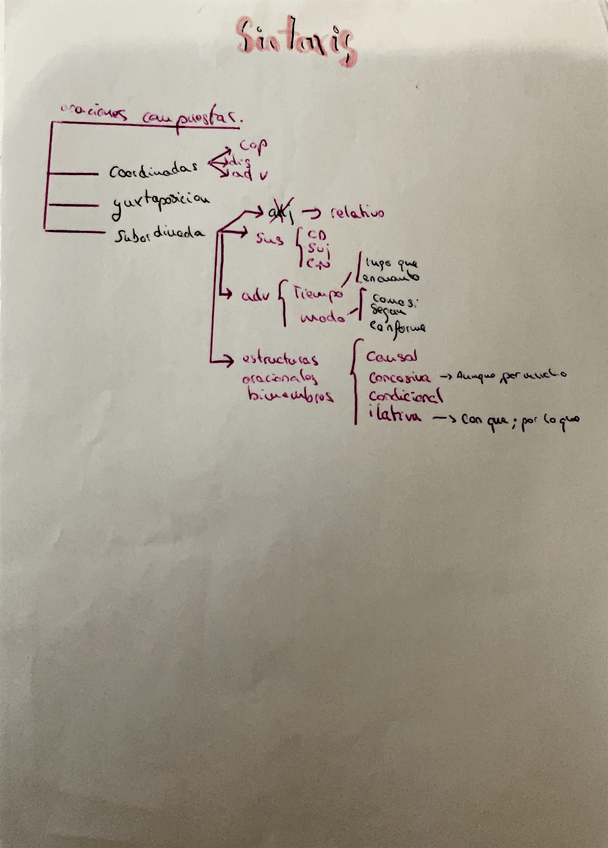 Sintaxis
oraciones compuestas.
Coordinadas
cop
dis
adv
yuxtaposicion
Subordinada
adj → relativo
sus
CD
Suj
C.N
adv
Tiempo
luego que
encuanto
modo
como si
Segun
conforme
estructuras
oracionales
bimembres
Causal
Concesiva → Aunque, por mucho
Condicional
ilativa → Con que; por lo que